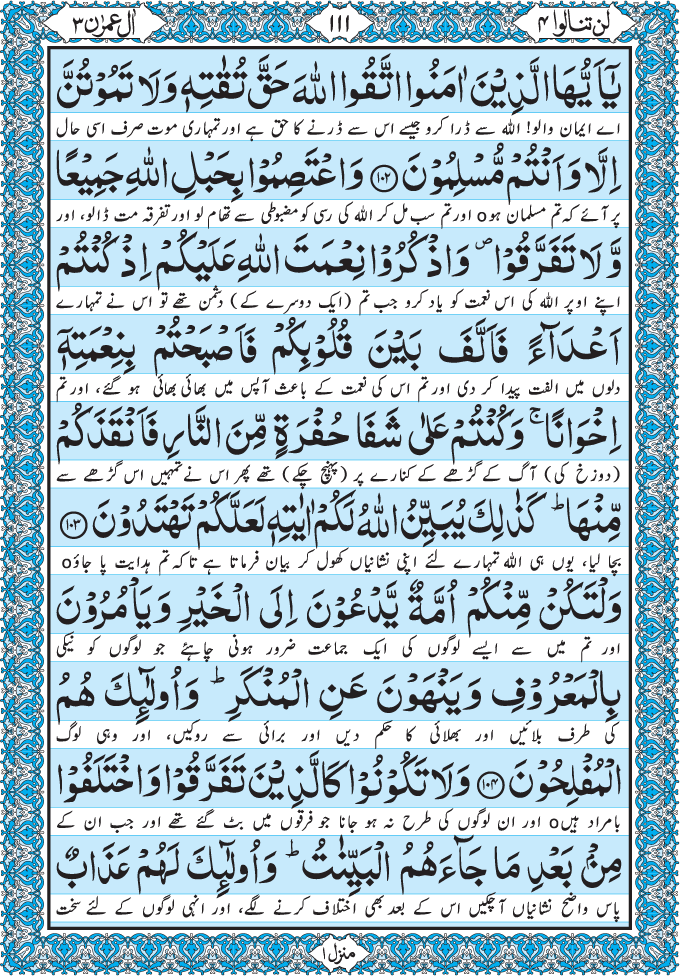 لن تنالوا ۴
۱۱۱
اٰل عمرٰن ۳
يٰۤاَيُّهَا الَّذِيْنَ اٰمَنُوا اتَّقُوا اللّٰهَ حَقَّ تُقٰتِهٖ وَلَا تَمُوْتُنَّ
اے ایمان والو! اللہ سے ڈرا کرو جیسے اس سے ڈرنے کا حق ہے اور تمہاری موت صرف اسی حال
اِلَّا وَاَنْتُمْ مُّسْلِمُوْنَ ﴿۱۰۲﴾ وَاعْتَصِمُوْا بِحَبْلِ اللّٰهِ جَمِيْعًا
پر آئے کہ تم مسلمان ہوo اور تم سب مل کر اللہ کی رسی کو مضبوطی سے تھام لو اور تفرقہ مت ڈالو، اور
وَّلَا تَفَرَّقُوْا ۪ وَاذْكُرُوْا نِعْمَتَ اللّٰهِ عَلَيْكُمْ اِذْ كُنْتُمْ
اپنے اوپر اللہ کی اس نعمت کو یاد کرو جب تم (ایک دوسرے کے) دشمن تھے تو اس نے تمہارے
اَعْدَآءً فَاَلَّفَ بَيْنَ قُلُوْبِكُمْ فَاَصْبَحْتُمْ بِنِعْمَتِهٖۤ
دلوں میں الفت پیدا کر دی اور تم اس کی نعمت کے باعث آپس میں بھائی بھائی ہو گئے، اور تم
اِخْوَانًا ۚ وَكُنْتُمْ عَلٰى شَفَا حُفْرَةٍ مِّنَ النَّارِ فَاَنْقَذَكُمْ
(دوزخ کی) آگ کے گڑھے کے کنارے پر (پہنچ چکے) تھے پھر اس نے تمہیں اس گڑھے سے
مِّنْهَا ؕ كَذٰلِكَ يُبَيِّنُ اللّٰهُ لَكُمْ اٰيٰتِهٖ لَعَلَّكُمْ تَهْتَدُوْنَ ﴿۱۰۳﴾
بچا لیا، یوں ہی اللہ تمہارے لئے اپنی نشانیاں کھول کر بیان فرماتا ہے تاکہ تم ہدایت پا جاؤo
وَلْتَكُنْ مِّنْكُمْ اُمَّةٌ يَّدْعُوْنَ اِلَى الْخَيْرِ وَيَاْمُرُوْنَ
اور تم میں سے ایسے لوگوں کی ایک جماعت ضرور ہونی چاہئے جو لوگوں کو نیکی
بِالْمَعْرُوْفِ وَيَنْهَوْنَ عَنِ الْمُنْكَرِ ؕ وَاُولٰٓئِكَ هُمُ
کی طرف بلائیں اور بھلائی کا حکم دیں اور برائی سے روکیں، اور وہی لوگ
الْمُفْلِحُوْنَ ﴿۱۰۴﴾ وَلَا تَكُوْنُوْا كَالَّذِيْنَ تَفَرَّقُوْا وَاخْتَلَفُوْا
بامراد ہیںo اور ان لوگوں کی طرح نہ ہو جانا جو فرقوں میں بٹ گئے تھے اور جب ان کے
مِنْۢ بَعْدِ مَا جَآءَهُمُ الْبَيِّنٰتُ ؕ وَاُولٰٓئِكَ لَهُمْ عَذَابٌ
پاس واضح نشانیاں آچکیں اس کے بعد بھی اختلاف کرنے لگے، اور انہی لوگوں کے لئے سخت
منزل ۱